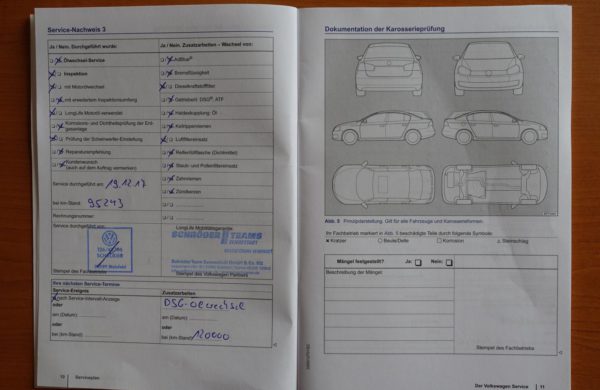 Service-Nachweis 3
Ja / Nein. Durchgeführt wurde:
Ölwechsel-Service
Inspektion
mit Motorölwechsel
mit erweitertem Inspektionsumfang
LongLife Motoröl verwendet
Korrosions- und Dichtheitsprüfung der Erdgasanlage
Prüfung der Scheinwerfer-Einstellung
Reparaturempfehlung
Kundenwunsch
(auch auf dem Auftrag vermerken)
Service durchgeführt am: 19.12.17
bei km-Stand: 95243
Rechnungsnummer:
Service durchgeführt von:
Stempel des Fachbetriebs
Ja / Nein. Zusatzarbeiten – Wechsel von:
AdBlue®
Bremsflüssigkeit
Dieselkraftstofffilter
Getriebeöl: DSG®, ATF
Haldexkupplung: Öl
Keilrippenriemen
Luftfiltereinsatz
Reifenfüllflasche (Dichtmittel)
Staub- und Pollenfiltereinsatz
Zahnriemen
Zündkerzen
LongLife Mobilitätsgarantie:
SCHRÖDER TEAMS
Stempel des Volkswagen Partners
Ihre nächsten Service-Termine
Service-Ereignis
nach Service-Intervall-Anzeige
oder
am (Datum):
oder
bei (km-Stand):
Zusatzarbeiten:
DSG-Ölwechsel
oder
am (Datum):
oder
bei (km-Stand): 120000
10 Serviceplan
Dokumentation der Karosserieprüfung
Abb. 5 Prinzipdarstellung: Gilt für alle Fahrzeuge und Karosserieformen.
Ihr Fachbetrieb markiert in Abb. 5 beschädigte Teile durch folgende Symbole:
x Kratzer
Beule/Delle
Korrosion
z. Steinschlag
Mängel festgestellt? Ja: Nein:
Beschreibung der Mängel:
Stempel des Fachbetriebs
Der Volkswagen Service 11